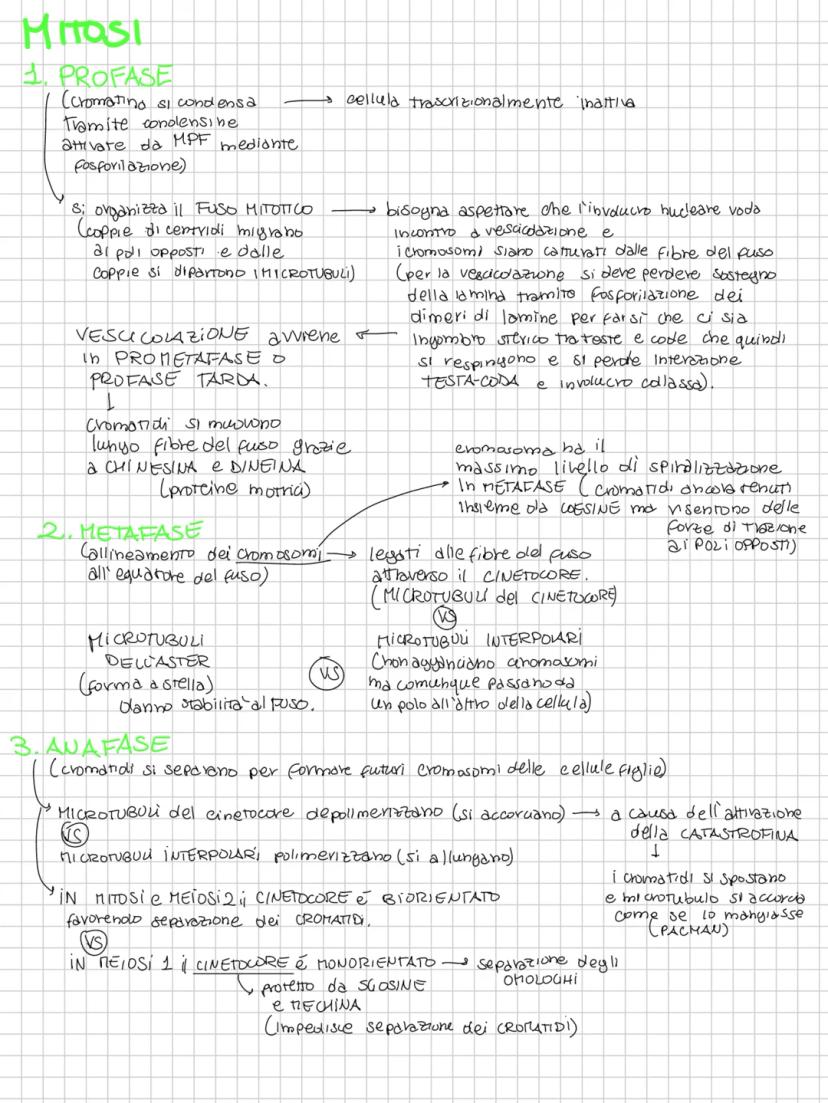 MITOSI
1. PROFASE
(cromatina si condensa → cellula trascrizionalmente inattiva
tramite condensine
attivate da MPF mediante
fosforilazione)
si organizza il FUSO MITOTICO → bisogna aspettare che l'involucro nucleare vada
(coppie di centrioli migrano
ai poli opposti e dalle
coppie si dipartono i MICROTUBULI)
incontro a vescicolazione e
i cromosomi siano catturati dalle fibre del fuso
(per la vescicolazione si deve perdere sostegno
della lamina tramite fosforilazione dei
dimeri di lamine per far si che ci sia
ingombro sterico tra teste e code che quindi
si respingono e si perde interazione
TESTA-CODA e involucro collassa).
VESCICOLAZIONE avviene
in PROMETAFASE O
PROFASE TARDA.
↓
cromatidi si muovono
lungo fibre del fuso grazie
a CHINESINA e DINEINA
(proteine motrici)
cromosoma ha il
massimo livello di spiralizzazione
in METAFASE (cromatidi ancora tenuti
insieme da COESINE ma risentono delle
forze di trazione
ai POLI OPPOSTI)
2. METAFASE
(allineamento dei cromosomi → legati alle fibre del fuso
all'equatore del fuso)
attraverso il CINETOCORE.
(MICROTUBULI del CINETOCORE)
VS
MICROTUBULI
DELL'ASTER
(forma a stella)
danno stabilità al FUSO.
VS
MICROTUBULI INTERPOLARI
(non agganciano cromosomi
ma comunque passano da
un polo all'altro della cellula)
3. ANAFASE
(cromatidi si separano per formare futuri cromosomi delle cellule figlie)
MICROTUBULI del cinetocore depolimerizzano (si accorciano) → a causa dell'attivazione
della CATASTROFINA
VS
MICROTUBULI INTERPOLARI polimerizzano (si allungano)
↓
i cromatidi si spostano
e microtubulo si accorcia
come se lo mangiasse
(PACMAN)
IN MITOSI e MEIOSI 2 il CINETOCORE é BIORIENTATO
favorendo separazione dei CROMATIDI.
VS
IN MEIOSI 1 il CINETOCORE é MONORIENTATO → separazione degli
OMOLOGHI
protetto da SGOSINE
e MECHINA
(impedisce separazione dei CROMATIDI)